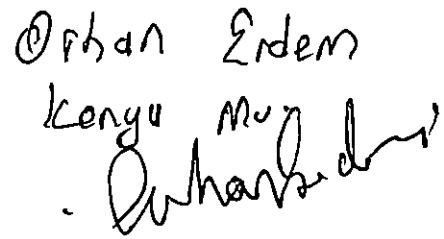 Orhan Erdem
Konya Mv.